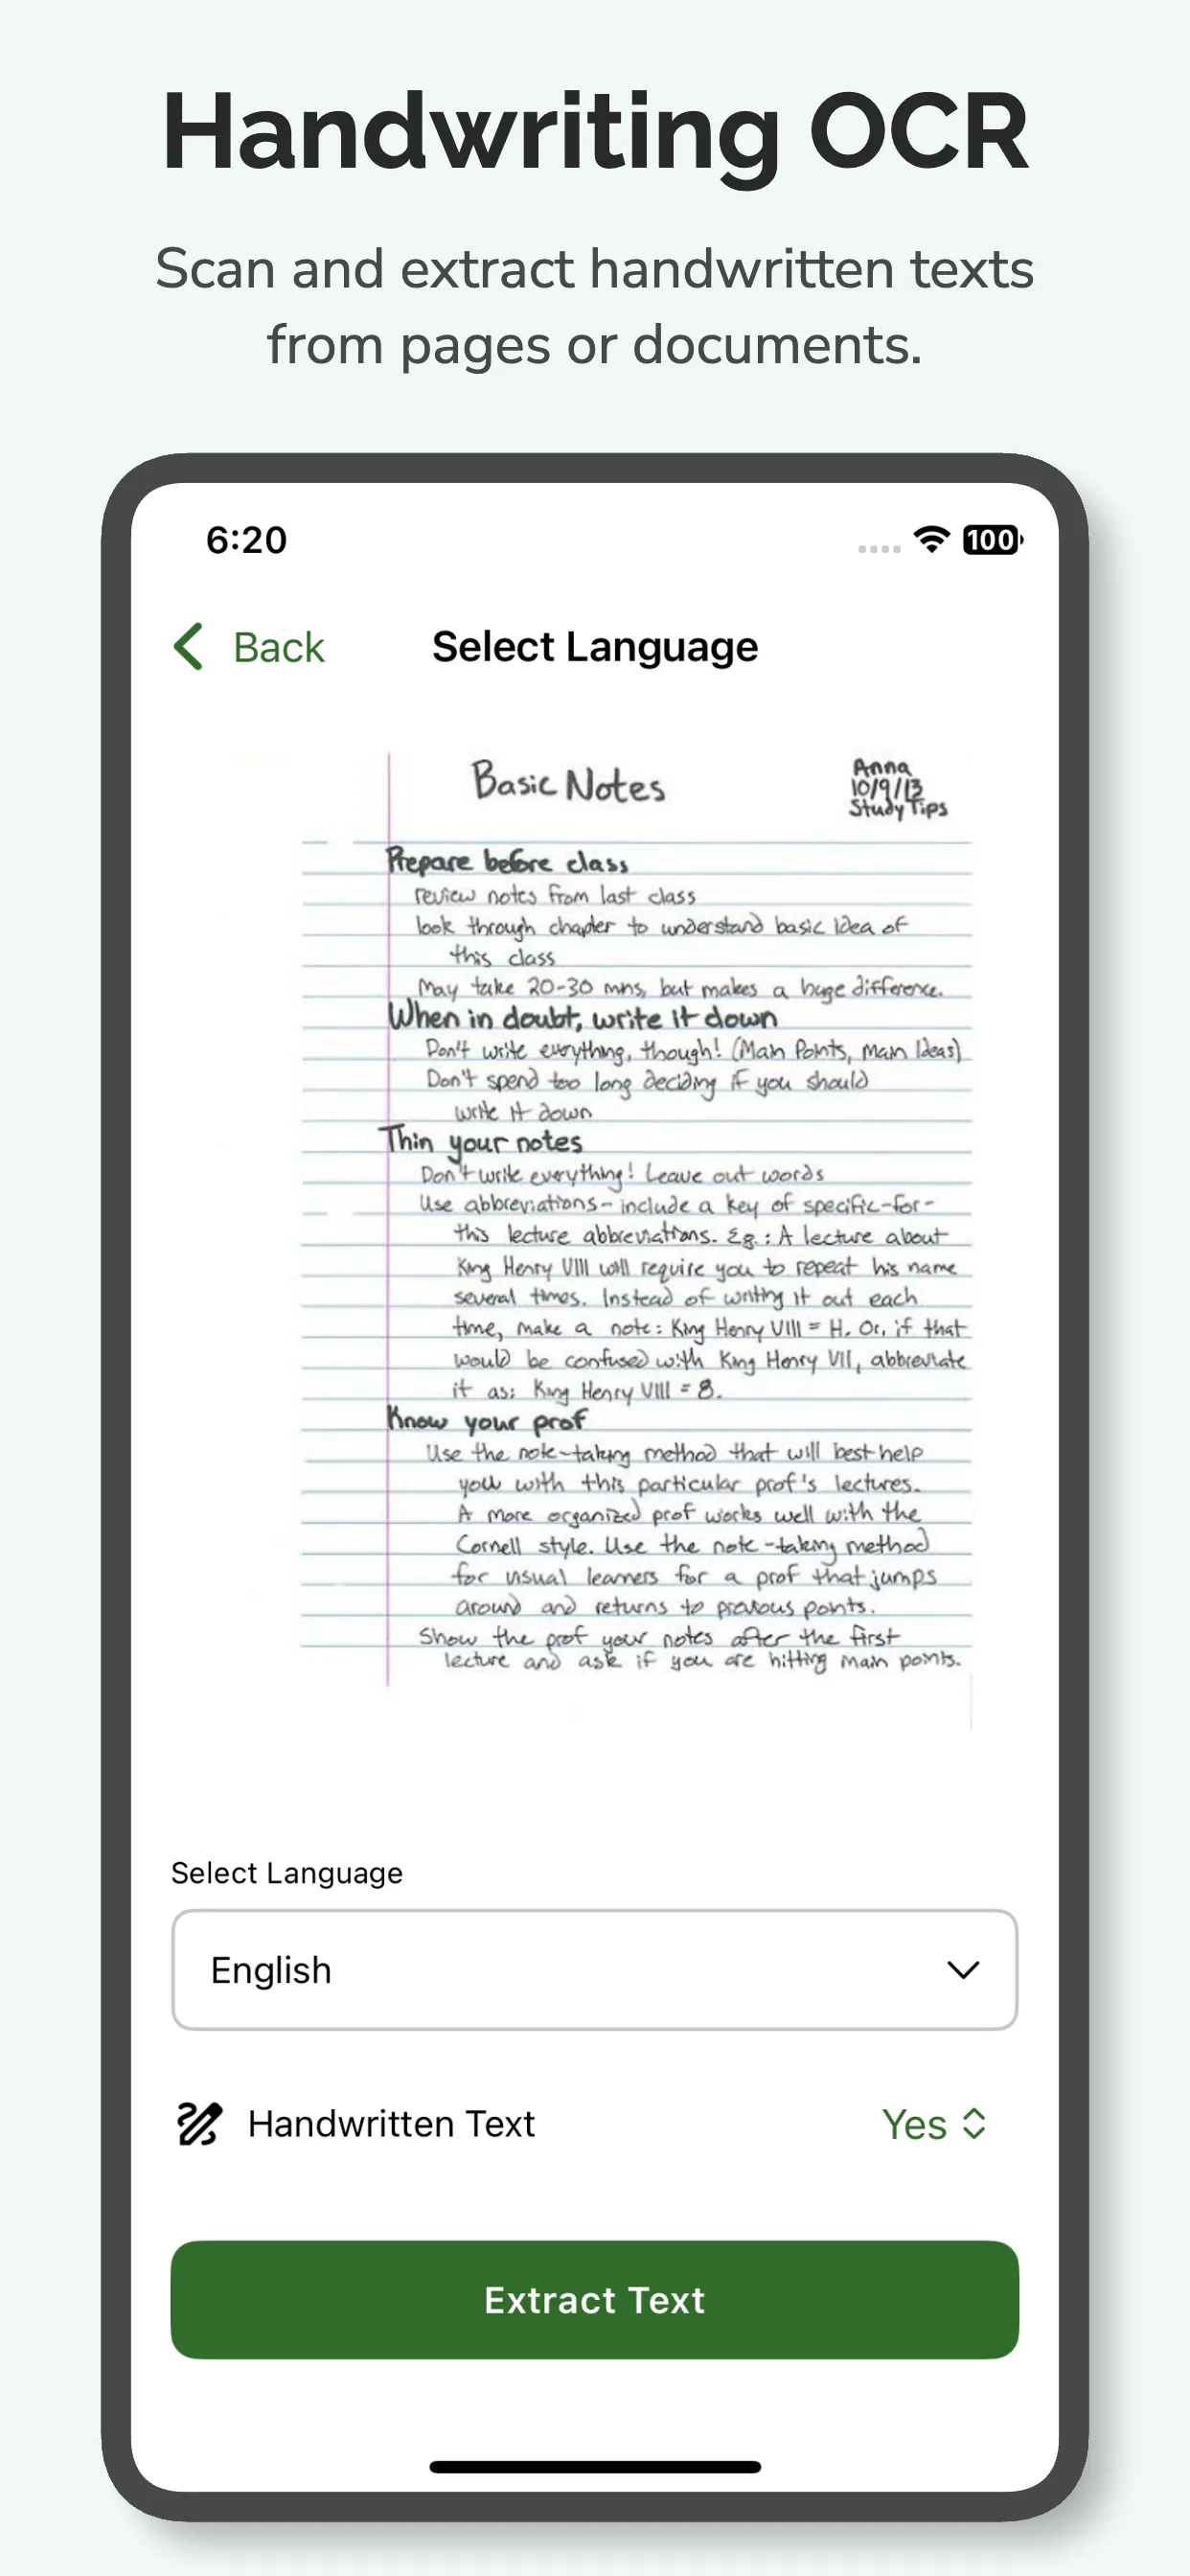 Handwriting OCR
Scan and extract handwritten texts
from pages or documents.
6:20
100
Back
Select Language
Basic Notes
Anna
10/9/13
Study Tips
Prepare before class
review notes from last class
look through chapter to understand basic Idea of
this class
May take 20-30 mns, but makes a huge difference.
When in doubt, write it down
Don't write everything, though! (Main Points, Main Ideas)
Don't spend too long deciding if you should
write it down
Thin your notes
Don't write everything! Leave out words
Use abbreviations- include a key of specific-for-
this lecture abbreviations. Eg.: A lecture about
King Henry VIII will require you to repeat his name
several times. Instead of writing it out each
time, make a note: King Henry VIII = H. Or, if that
would be confused with King Henry VII, abbreviate
it as: King Henry VIII = 8.
Know your prof
Use the note-taking method that will best help
you with this particular prof's lectures.
A more organized prof works well with the
Cornell style. Use the note-taking method
for visual learners for a prof that jumps
around and returns to previous points.
Show the prof your notes after the first
lecture and ask if you are hitting main points.
Select Language
English
Handwritten Text
Yes
Extract Text